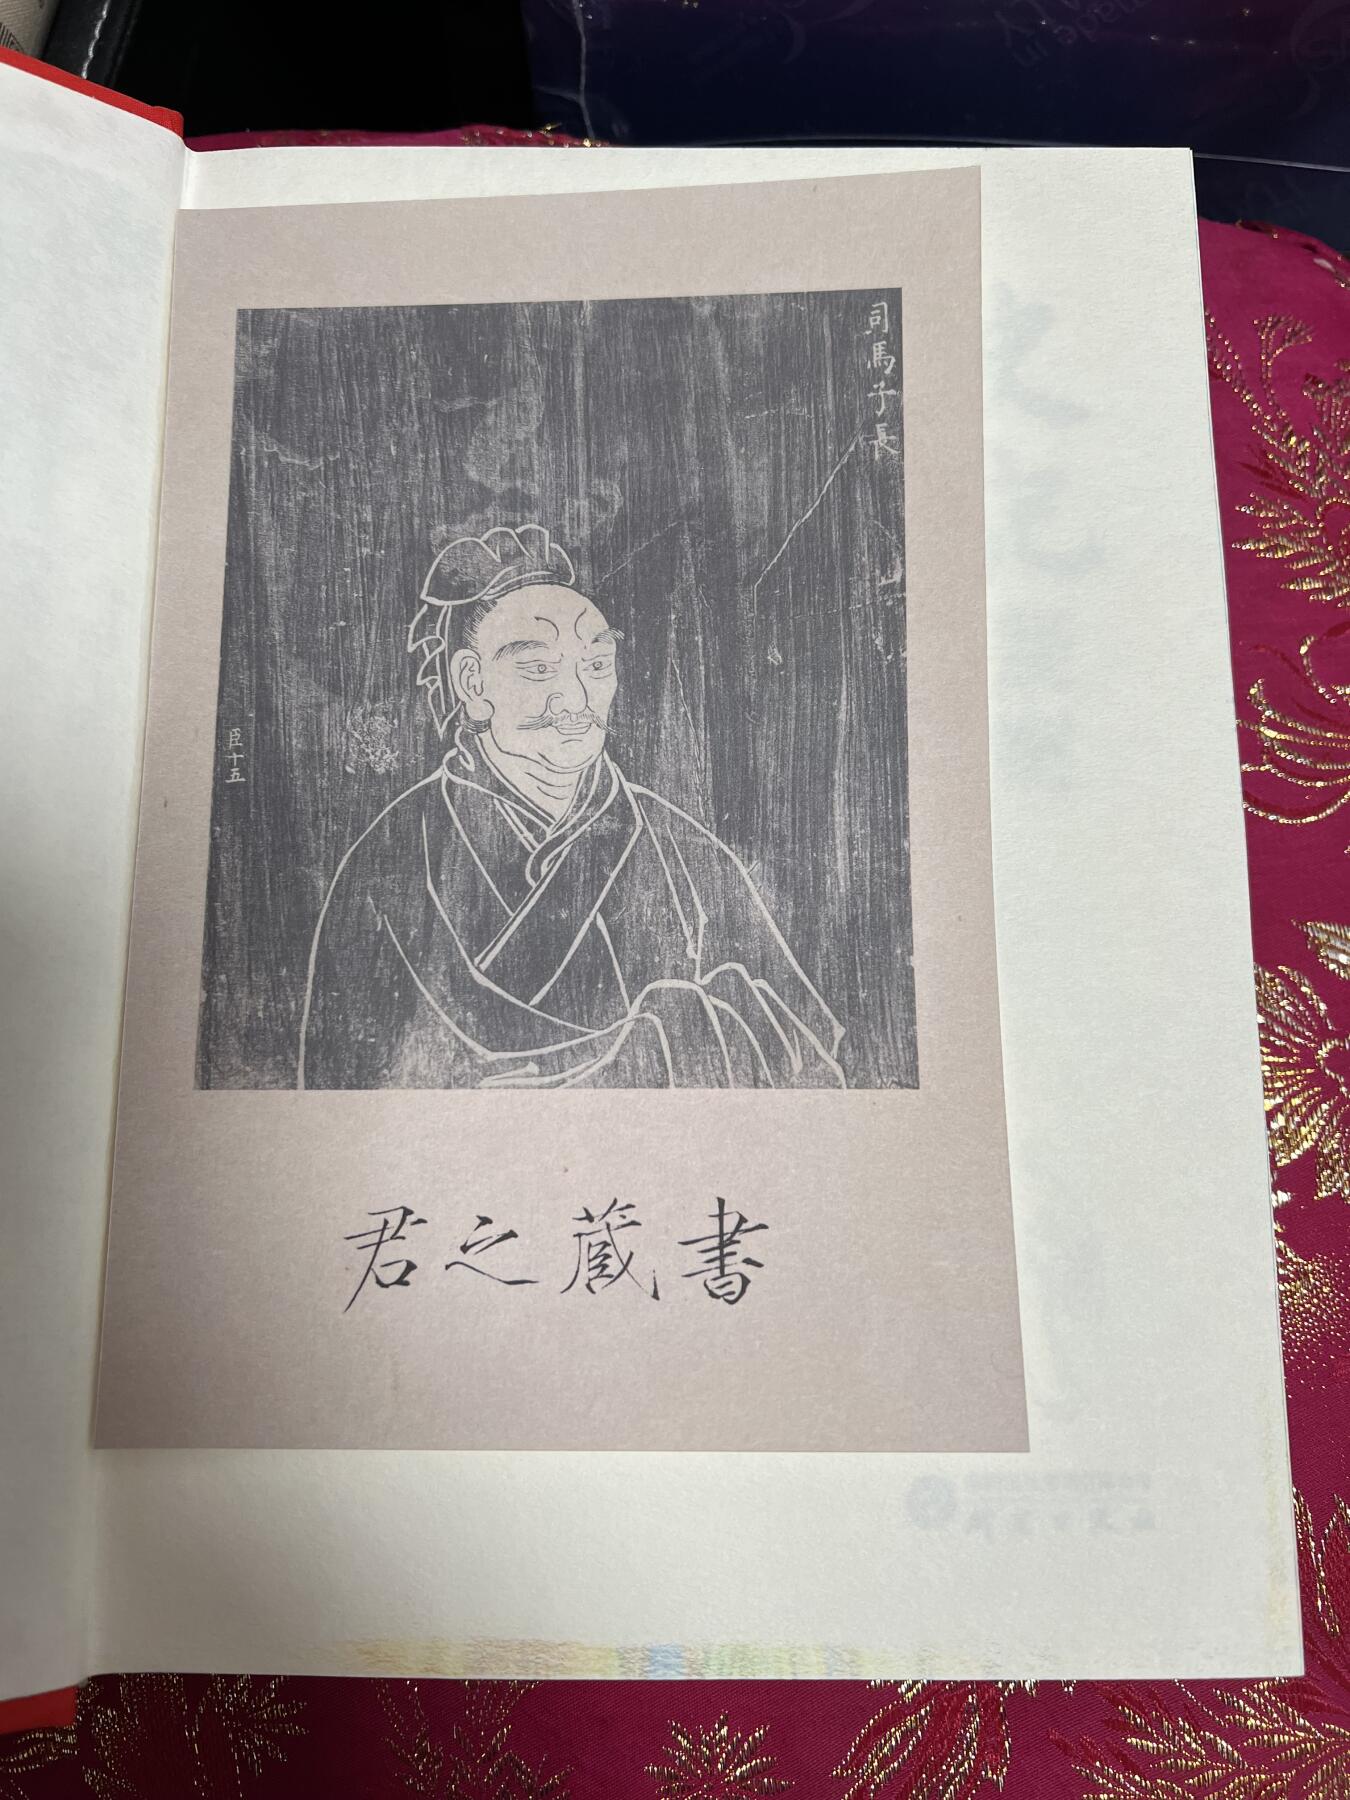 司馬子長
臣十五
君之蔵書